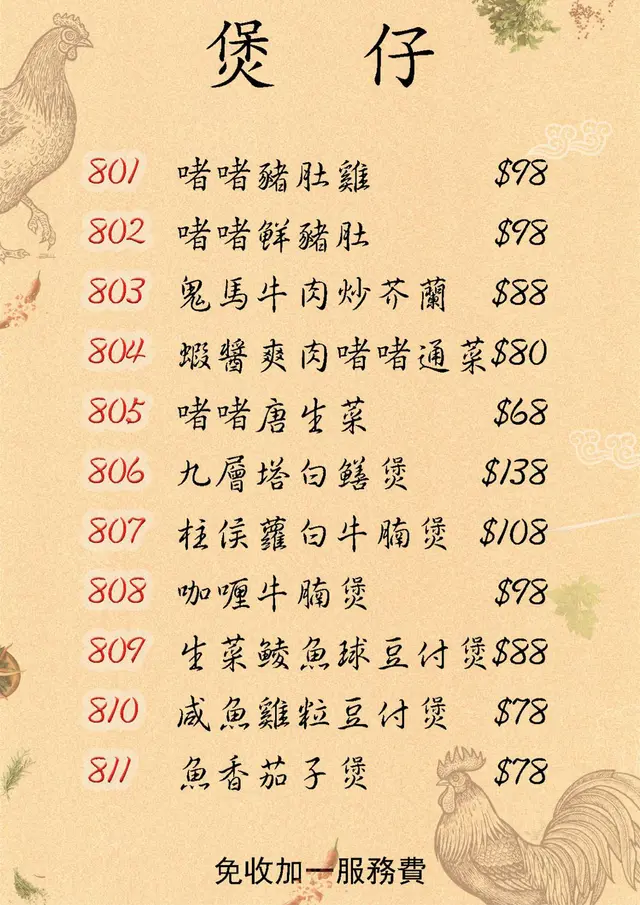 煲 仔
801 啫啫豬肚雞 $98
802 啫啫鮮豬肚 $98
803 鬼馬牛肉炒芥蘭 $88
804 蝦醬爽肉啫啫通菜 $80
805 啫啫唐生菜 $68
806 九層塔白鱔煲 $138
807 柱侯蘿白牛腩煲 $108
808 咖喱牛腩煲 $98
809 生菜鯪魚球豆付煲 $88
810 咸魚雞粒豆付煲 $78
811 魚香茄子煲 $78
免收加一服務費